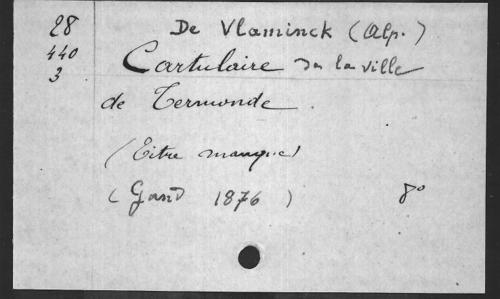 28 De Vlaminck (Alp.)
440 Cartulaire de la ville
3
de Termonde.
(Titre manque)
(Gand 1876) 8º